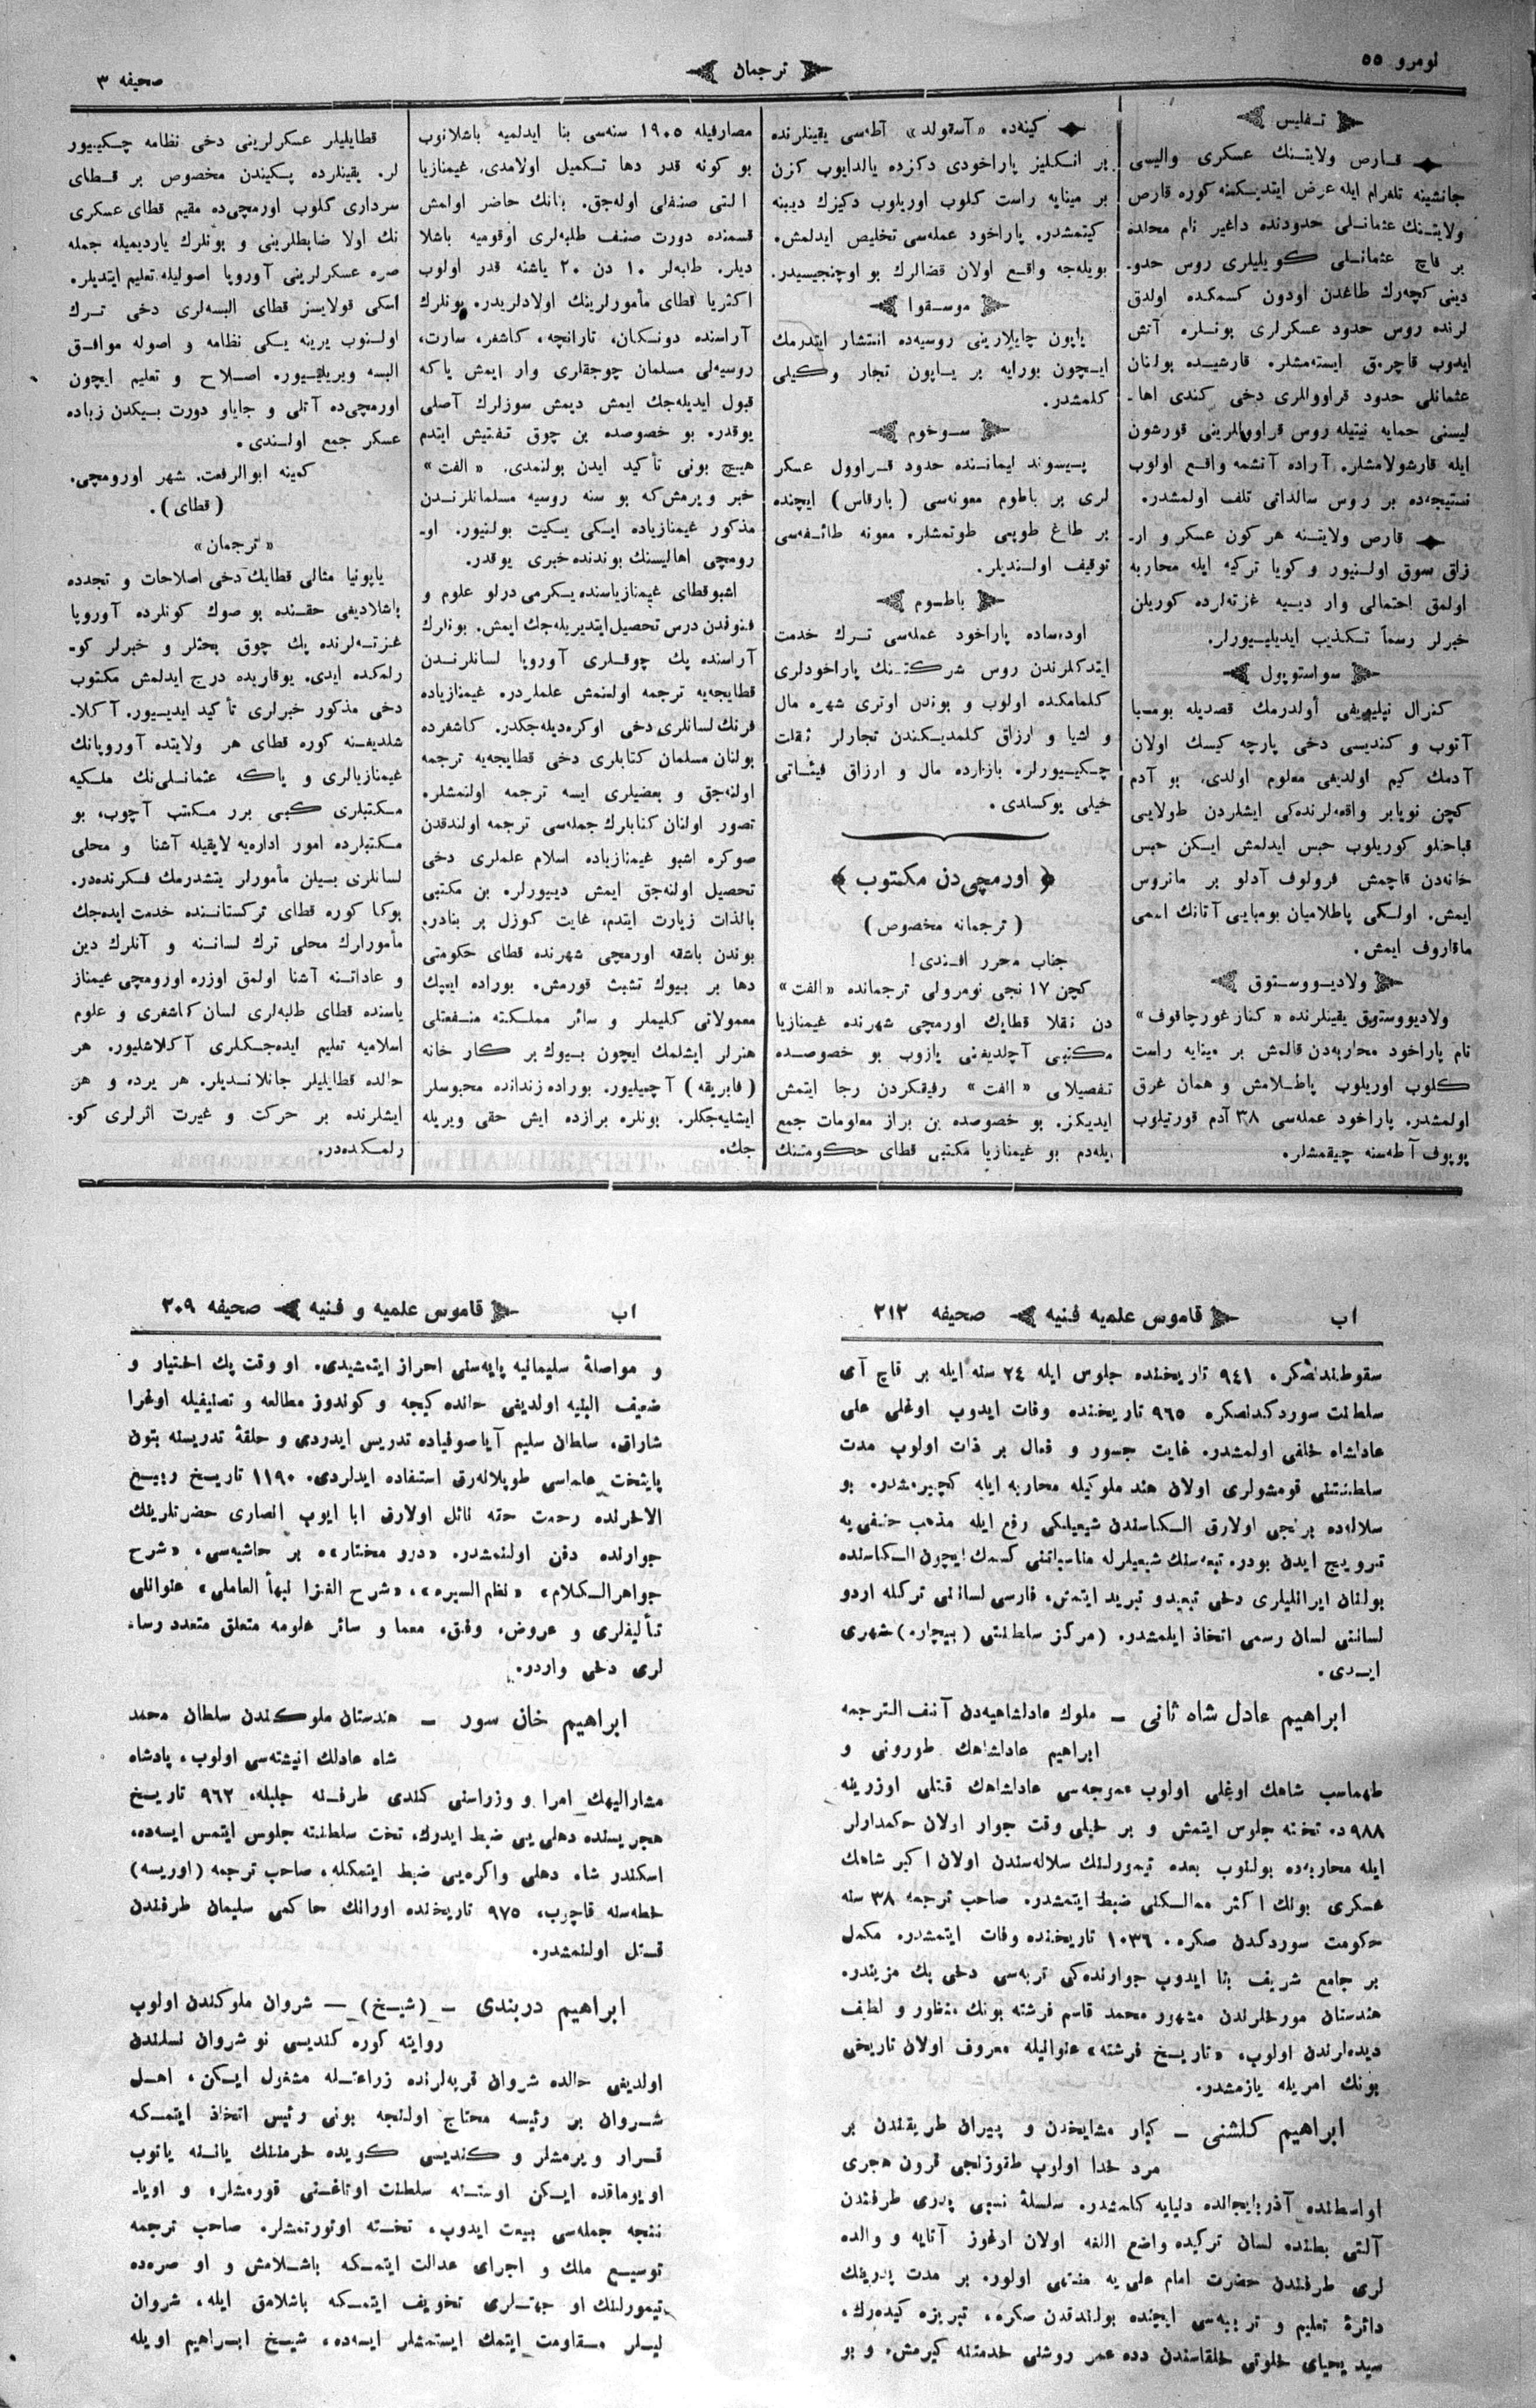 نومرو ٥٥
ترجمان
صحیفه ٣
تـفلیس
قـارص ولایتـنك عسكری والیسی
جانشینه تلغرام ایله عرض ایتدیـكـنه كوره قارص
ولایتـنك عثمانـلی حدودنده داغیر نام محلده
بر قاچ عثمانـلی كـویلیلری روس حدو-
دینی كچه‌رك طاغدن اودون كسمكده اولدق
لرنده روس حدود عسكرلری بونـلره آتش
ایدوب قاچرمق ایسته‌مشلر. قارشیـده بولنان
عثمانلی حدود قراوللری دخی كندی اها-
لیسنی حمایه نیتیله روس قراوللرینی قورشون
ایله قارشولامشلر. آراده آتشمه واقـع اولوب
نتیجه‌ده بر روس سالداتی تلف اولمشدر.
قارص ولایتـنه هر كون عسكر و ار-
زاق سوق اولـنیور و كویا تركیه ایله محاربه
اولمق احتمالی وار دیـیه غزته‌لرده كوریلن
خبرلر رسماً تـكذیب ایدیلـیـورلر.
سواستوپول
كنرال نپلیویفی أولدرمك قصدیله بومـبا
آتوب و كندیسی دخی پارچه كیسك اولان
آدمك كیم اولدیغی معلوم اولدی، بو آدم
كچن نویابر واقعه‌لرنده‌كی ایشلردن طولایی
قباحتلو كوریلوب حبس ایدلمش ایـكن حبس
خانه‌دن قاچمش فرولوف آدلو بر ماتروس
ایمش. اولـكی پاطلامیان بومبایی آتانك اسمی
ماقاروف ایمش.
ولادیـووستوق
ولادیووستوق یقینلرنده «كناز غورچاقوف»
نام پاراخود محاربه‌دن قالمش بر مینایه راست
كلوب اوریلوب پاطـلامش و همان غرق
اولمشدر. پاراخود عمله‌سی ٣٨ آدم قورتیلوب
پوپوف آطه‌سنه چیقمشلر.
كینه‌ده «آسقولد» آطه‌سی یقینلرنده
بر انـكلیز پاراخودی دكزده یالدایوب كزن
بر مینایه راست كلوب اوریلوب دكیزك دیبنه
كیتمشدر. پاراخود عمله‌سی تخلیص ایدلمش.
بویله‌جه واقـع اولان قضالرك بو اوچنجیسیدر.
موسـقوا
یاپون چایلارینی روسیه‌ده انتشار ایتدرمك
ایـچون بورایه بر یـاپون تجار وكیلی
كلمشدر.
سـوخوم
پـیسوند لیمانـنده حدود قـراوول عسكر
لری بر باطوم معونه‌سی (بارقاس) ایچنده
بر طاغ طوپی طوتمشلر. معونه طائـفه‌سی
توقیف اولـندیلر.
باطـوم
اوده‌ساده پاراخود عمله‌سی تـرك خدمت
ایتدكلرندن روس شركتـنك پاراخودلری
كلمامكده اولوب و بوندن اوتری شهره مال
و اشیا و ارزاق كلمدیـكندن تجارلر ثقلت
چـكیـیورلر. بازارده مال و ارزاق فیئـاتی
خیلی یوكسلدی.
﴿ اورمچی‌دن مكتوب ﴾
(ترجمانه مخصوص)
جناب محرر افـندی!
كچن ١٧ نجی نومرولی ترجمانده «الفت»
دن نقلا قطایك اورمچی شهرنده غیمنازیا
مكتبی آچلدیغنی یازوب بو خصوصـده
تفصیلاتی «الفت» رفیقكزدن رجا ایتمش
ایدیكز. بو خصوصده بن براز معلومات جمع
ایله‌دم بو غیمنازیا مكتبی قطای حكومتـنك
مصارفیله ١٩٠٥ سنه‌سی بنا ایدلمیه باشلانوب
بو كونه قدر دها تـكمیل اولامدی. غیمنازیا
التی صنفلی اوله‌جق. بنانك حاضر اولمش
قسمنده دورت صنف طلبه‌لری اوقومیه باشلا
دیلر. طلبه‌لر ١٠ دن ٢٠ یاشنه قدر اولوب
اكثریا قطای مأمورلرینك اولادلریدر. بونلرك
آراسنده دونـكان، تارانچه، كاشغر، سارت،
روسیه‌لی مسلمان چوجقلری وار ایمش یاكه
قبول ایدیله‌جك ایمش دیمش سوزلرك آصلی
یوقدر. بو خصوصده بن چوق تـفتیش ایتدم
هیـچ بونی تأكید ایدن بولنمدی. «الفت»
خبر ویرمش‌كه بو سنه روسیه مسلمانلرنـدن
مذكور غیمنازیاده ایـكی یـكیت بولنیور. او-
رومچی اهالیسنك بوندنده خبری یوقدر.
اشبو قطای غیمنازیاسنده یـكرمی درلو علوم و
فنوفدن درس تحصیل ایتدیریله‌جك ایمش. بونلرك
آراسنده پك چوقـلری آوروپا لسانلرنـدن
قطایجه‌یه ترجمه اولنمش علملردر. غیمنازیاده
فرنك لسانلری دخی اوكره‌دیله‌جكدر. كاشغرده
بولنان مسلمان كتابلری دخی قطایجه‌یه ترجمه
اولنه‌جق و بعضیلری ایسه ترجمه اولنمشلر.
تصور اولنان كتابلرك جمله‌سی ترجمه اولندقدن
صوكره اشبو غیمنازیاده اسلام علملری دخی
تحصیل اولنه‌جق ایمش دیـیورلر. بن مكتبی
بالذات زیارت ایتدم، غایت كوزل بر بنادر.
بوندن باشقه اورمچی شهرنده قطای حكومتی
دها بر بیوك تشبث قورمش. بوراده ایپپك
معمولاتی كلیملر و سائر مملـكته منـفعتلی
هنرلر ایشلمك ایچون بـیوك بر كارخانه
(فابریقه) آچیلیور. بوراده زندانده محبوسلر
ایشلیه‌جكلر. بونلره برازده ایش حقی ویریله
جك.
قطایلیلر عسكرلرینی دخی نظامه چـكیـیور
لر. یقینلرده پـكیندن مخصوص بر قـطای
سرداری كلوب اورمچی‌ده مقیم قطای عسكری
نك اولا ضابطلرینی و بونلرك یاردیمیله جمله
صره عسكرلرینی آوروپا اصولیله تعلیم ایتدیلر.
اسكی قولایسز قطای البسه‌لری دخی تـرك
اولـنوب یرینه یـكی نظامه و اصوله موافـق
البسه ویریلـیور. اصـلاح و تعلیم ایچون
اورمچی‌ده آتلی و جایاو دورت بـیكدن زیاده
عسكر جمع اولـندی.
كمینه ابوالرفعت. شهر اورومچی.
(قطای).
«ترجمان»
یاپونیا مثالی قطایك دخی اصلاحات و تجدده
باشلادیغی حقـنده بو صوك كونلرده آوروپا
غزتـه‌لرنده پك چوق بحثلر و خبرلر كو-
رلمكده ایدی. یوقاریده درج ایدلمش مكتوب
دخی مذكور خبرلری تأكید ایدیـیور. آكلا-
شلدیغـنه كوره قطای هر ولایتده آوروپانك
غیمنازیالری و یاكه عثمانـلی‌نك ملـكیه
مـكتبلری كـبی برر مـكتب آچوب، بو
مـكتبلرده امور اداره‌یه لایقیله آشنا و محلی
لسانلری بـیلن مأمورلر یتشدرمك فـكرنده‌در.
بوكا كوره قطای تركستانـنده خدمت ایده‌جك
مأمورلرك محلی ترك لسانـنه و آنلرك دین
و عاداتـنه آشنا اولمق اوزره اورومچی غیمناز
یاسنده قطای طلبه‌لری لسان كاشغری و علوم
اسلامیه تعلیم ایده‌جـكلری آكلاشلیور. هر
حالده قطایلیلر جانلانـدیلر. هر یرده و هر
ایشلرنده بر حركت و غیرت اثرلری كو-
رلمـكده‌در.
اب
قاموس علمیه فنیه
صحیفه ٢١٢
سقوطندنصكره، ٩٤١ تاریخنده جلوس ایله ٢٤ سنه ایله بر قاچ آی
سلطنت سوردكدنصكره ٩٦٥ تاریخنده وفات ایدوب اوغلی علی
عادلشاه خلفی اولمشدر. غایت جسور و فعال بر ذات اولوب مدت
سلطنتنی قومشولری اولان هند ملوكیله محاربه ایله كچیرمشدر. بو
سلاله‌ده برنجی اولارق السكناسندن شیعیلكی رفع ایله مذهب حنفی‌یه
ترویـج ایدن بودر. تبعه‌سنك شیعیلرله مناسباتنی كسمك ایچون
بولنان ایرانلیلری دخی تبعید و تبرید ایتمش، فارسی لسانی تركله اردو
لسانی لسان رسمی اتخاذ ایلمشدر. (مركز سلطنتی (بیچاره) شهری
ایـدی.
ابراهیم عادل شاه ثانی – ملوك عادلشاهیه‌دن آنف الترجمه
ابراهیم عادلشاهك طورونی و
طهماسب شاهك اوغلی اولوب عموجه‌سی عادلشاهك قتلی اوزرینه
٩٨٨ ده تخته جلوس ایتمش و بر خیلی وقت جوار اولان حكمدارلر
ایله محاربه‌ده بولنوب بعده تیمورلنك سلاله‌سندن اولان اكبر شاهك
عسكری بونك اكثر ممالـكنی ضبط ایتمشدر. صاحب ترجمه ٣٨ سنه
حكومت سوردكدن صكره، ١٠٣٦ تاریخنده وفات ایتمشدر. مكمل
بر جامع شریف بنا ایدوب جوارنده‌كی تربه‌سی دخی پك مزیندر.
هندستان مورخلرندن مشهور محمد قاسم فرشته بونك منظور و لطف
دیده‌لرندن اولوب، «تاریـخ فرشته» عنوانیله معروف اولان تاریخی
بونك امریله یازمشدر.
ابراهیم كلشنی – كبار مشایخدن و پیران طریقتدن بر
مرد خدا اولوب طقوزنجی قرون هجری
اواسطنده آذربایجانده دنیایه كلمشدر. سلسلهٔ نسبی پدری طرفندن
آلتی بطنده لسان تركیده واضع اللغه اولان ارغوز آتایه و والده
لری طرفندن حضرت امام علی‌یه منتهی اولور. بر مدت پدرینك
دائرهٔ تعلیم و تربیه‌سی ایچنده بولندقدن صكره، تبریزه كیده‌رك،
سید یحیای خلوتی خلقاسندن دده عمر روشنی خدمتنه كیرمش، و بو
اب
قاموس علمیه و فنیه
صحیفه ٢٠٩
و مواصلهٔ سلیمانیه پایه‌سنی احراز ایتمشیدی. او وقت پك اختیار و
ضعیف البنیه اولدیغی حالده كیجه و كوندوز مطالعه و تصنیفیله اوغرا
شارق، سلطان سلیم آیاصوفیاده تدریس ایدردی و حلقهٔ تدریسنه بتون
پایتخت علماسی طوپلاله‌رق استفاده ایدلردی. ١١٩٠ تاریـخ ربیـع
الاخرنده رحمت حقه نائل اولارق ابا ایوب انصاری حضرتلرینك
جوارنده دفن اولنمشدر. «درو مختار»ه بر حاشیه‌سی، «شرح
جواهرالـكلام» «نظم السیره»، «شرح الغزا لبهأ العاملی» عنوانلی
تألیفلری و عروض، وفق، معما و سائر علومه متعلق متعدد رسا
لری دخی واردو.
ابراهیم خان سور – هندستان ملوكندن سلطان محمد
شاه عادلك انیشته‌سی اولوب، پادشاه
مشارالیهك امرا و وزراسنی كندی طرفـنه جلبله، ٩٦٢ تاریـخ
هجریسنده دهلی‌یی ضبط ایدرك، تخت سلطنته جلوس ایتمس ایسه‌ده،
اسكندر شاه دهلی و اكره‌یی ضبط ایتمكله، صاحب ترجمه (اوریسه)
خطه‌سنه قاچرب، ٩٧٥ تاریخنده اورانك حاكمی سلیمان طرفندن
قـتل اولنمشدر.
ابراهیم دربندی – (شیـخ) – شروان ملوكندن اولوب
روایته كوره كندیسی نو شروان نسلندن
اولدیغی حالده شروان قریه‌لرنده زراعتـله مشغول ایـكن، اهـل
شـروان بر رئیسه محتاج اولنجه بونی رئیس اتخاذ ایتمـكه
قـرار ویرمشلر و كندیسی كـویده خرمننك یانـنه یاتوب
اویوماقده ایـكن اوستـنه سلطنت اوتاغـنی قورمشلر، و اویا-
ننجه جمله‌سی بیعت ایدوب، تختـه اوتورتمشلر. صاحب ترجمه
توسیـع ملك و اجرای عدالت ایتمـكه باشـلامش و او صره‌ده
تیمورلنك او جهتـلری تخویف ایتمـكه باشلامق ایله، شروان
لیـلر مـقاومت ایتمك ایستمشلر ایسه‌ده، شیـخ ابـراهیم اویله